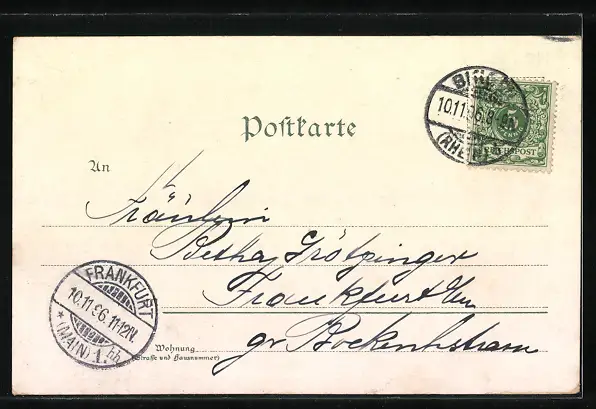 Postkarte
BING
10.11.96.8
(RHEIN)
REICHSPOST
An
Fräulein
Betha Grötzinger
Frankfurt a/m
gr Bockenhstrasse
FRANKFURT
10.11.96.11-12N.
* (MAIN) 1. hh
Wohnung
(Straße und Hausnummer)